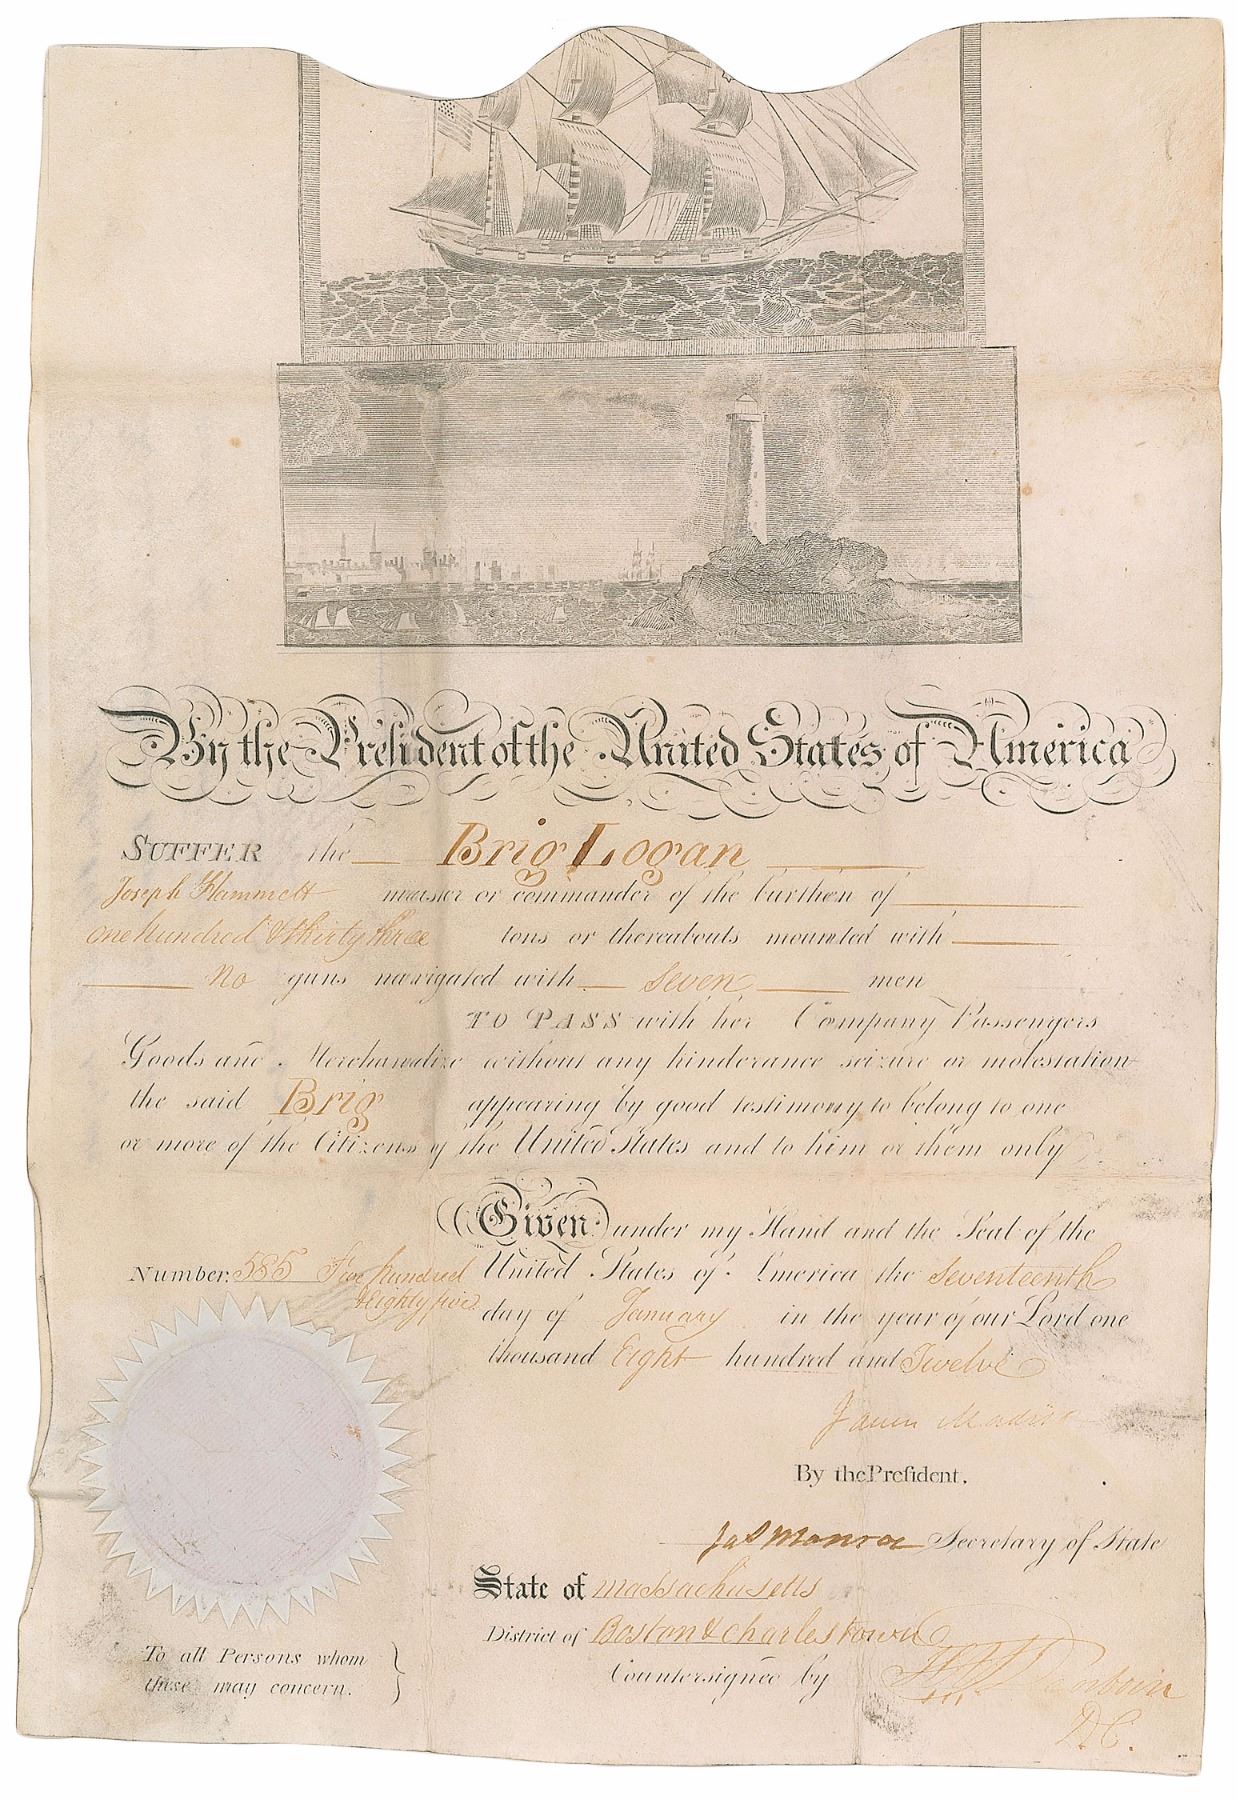 By the President of the United States of America
SUFFER the Brig Logan
Joseph Hammett master or commander of the burthen of
one hundred & thirty three tons or thereabouts mounted with
no guns navigated with seven men
TO PASS with her Company Passengers
Goods and Merchandize without any hinderance seizure or molestation
the said Brig appearing by good testimony to belong to one
or more of the Citizens of the United States and to him or them only
Given under my Hand and the Seal of the
United States of America the Seventeenth
day of January in the year of our Lord one
thousand Eight hundred and Twelve
Number 585 Five hundred
& Eighty five
James Madison
By the President.
Jas Monroe Secretary of State
State of Massachusetts
District of Boston & Charlestown
Countersigned by Dearborn
D.C.
To all Persons whom
these may concern.